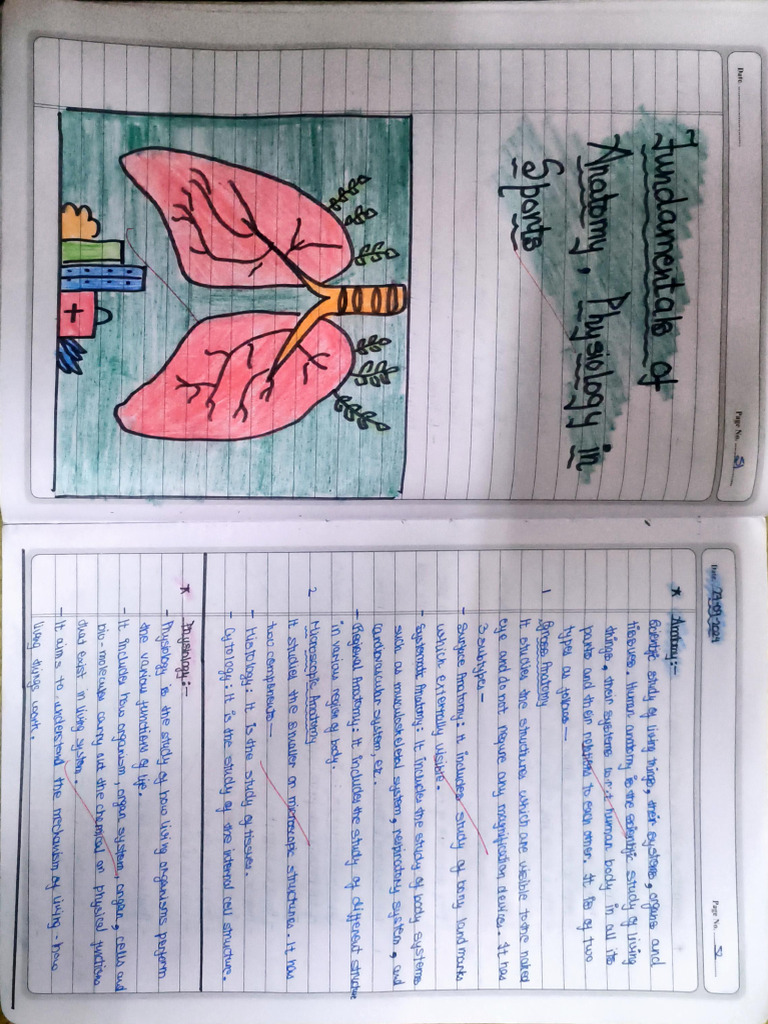 Date
Page No. 51
Fundamentals of
Anatomy, Physiology in
Sports
Date 23/09/2024
Page No. 52
* Anatomy:-
Scientific study of living things, their systems, organs and
tissues. Human anatomy is the scientific study of living
things, their systems human body in all its
parts and then to each other. It is of two
types as follows —
1 Gross Anatomy
It studies the structures which are visible to the naked
eye and do not require any magnification devices. It has
3 subtypes —
- Surface Anatomy: It includes study of bony land marks
which externally visible.
- Systematic Anatomy: It includes the study of body systems
such as musculoskeletal system, respiratory system, and
cardiovascular system, etc.
- Regional Anatomy: It includes the study of different structure
in various region of body.
2 Microscopic Anatomy
It studies the smaller or microscopic structures. It has
two components—
- Histology: It is the study of tissues.
- Cytology: It is the study of the internal cell structure.
* Physiology:-
- Physiology is the study of how living organisms perform
the various functions of life.
- It includes how organism, organ system, organ, cells and
bio-molecules carry out the chemical or physical functions
that exist in living system.
- It aims to understand the mechanism of living - how
living things work.